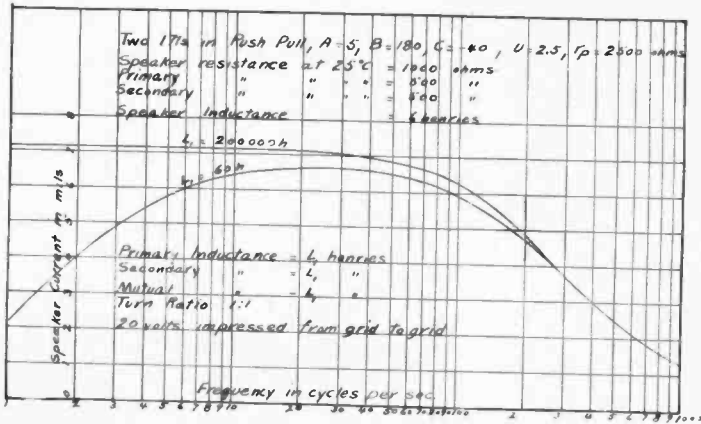 Two 171s in Push Pull, A=5, B=180, C=-40, U=2.5, rp=2500 ohms
Speaker resistance at 25°C = 1000 ohms
Primary " " " " = 500 "
Secondary " " " " = 500 "
Speaker Inductance = 6 henries
L, = 200000h
L, = 60h
8
7
6
5
4
3
2
1
0
Speaker Current in mils
Primary Inductance = L, henries
Secondary " = L, "
Mutual " = L, "
Turn Ratio 1:1
20 volts impressed from grid to grid
Frequency in cycles per sec.
1 2 3 4 5 6 7 8 9 10 20 30 40 50 60 70 80 90 100 2 3 4 5 6 7 8 9 1000